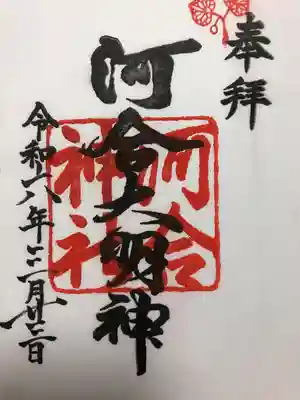 奉拝
河合大明神
河合神社
令和六年三月廿三日